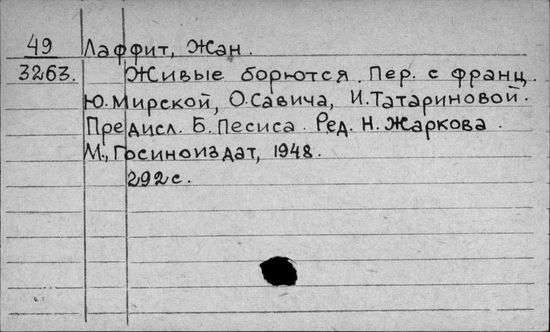 49 Лаффит, Жан.
3263. Живые борются. Пер. с франц.
Ю. Мирской, О. Савича, И. Татариновой.
Предисл. Б. Песиса. Ред. Н. Жаркова.
М., Госиноиздат, 1948.
292 с.